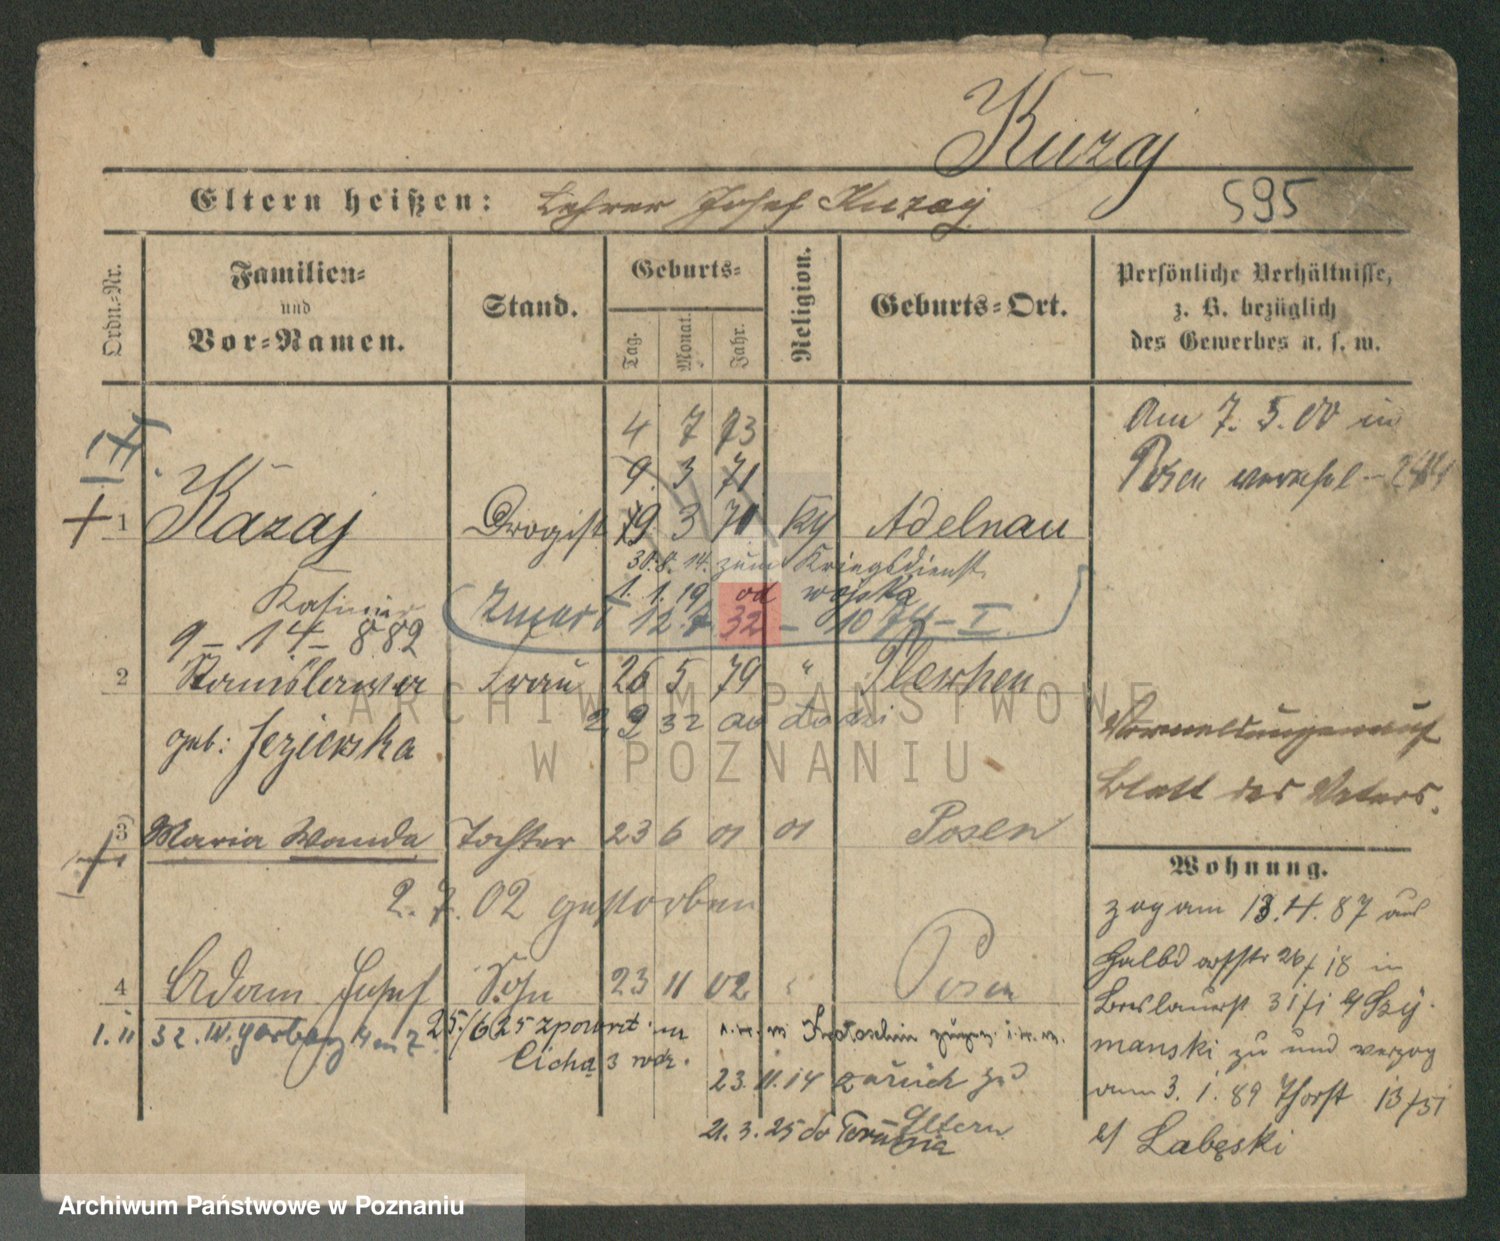 Kuzaj
Eltern heißen: Lehrer Josef Kuzaj
595
Ordn.-Nr.
Familien-
und
Vor-Namen.
Stand.
Geburts-
Tag.
Monat.
Jahr.
Religion.
Geburts-Ort.
Persönliche Verhältnisse,
z. B. bezüglich
des Gewerbes u. s. w.
4 7 73
9. 3 71
Am 7. 5. 00 in
Posen
1 Kazaj Drogist 19 3 71 Adelnau
30.8.14. zum Kriegsdienst
Kasimir
1. 1. 19 od wojska
Zmarł 12.7 32 – 1074 – I
9 – 14 – 882
2 Stanislawa Frau 26 5 79 " Pleschen
2 9 32 do
geb: Jezierska
Blatt des Vaters.
3 Maria Wanda Tochter 23 6 01 Posen
2. 7. 02 gestorben
Wohnung.
zog am 13.4.87 aus
Halbdorfstr 26/18 in
Breslauerst 31/1 Szy-
manski zu und verzog
am 3. 1. 89 Thorst 13/51
b/ Labęski
4 Adam Josef Sohn 23 11 02 " Posen
1. 11 32. W. Garbary 4 m 7
25./6 25 z powrot. na
Cicha 3 rodz.
Krotoschin
23.11.14 zurück zu
Eltern
21.3.25 do Torunia
ARCHIWUM PAŃSTWOWE
W POZNANIU
Archiwum Państwowe w Poznaniu